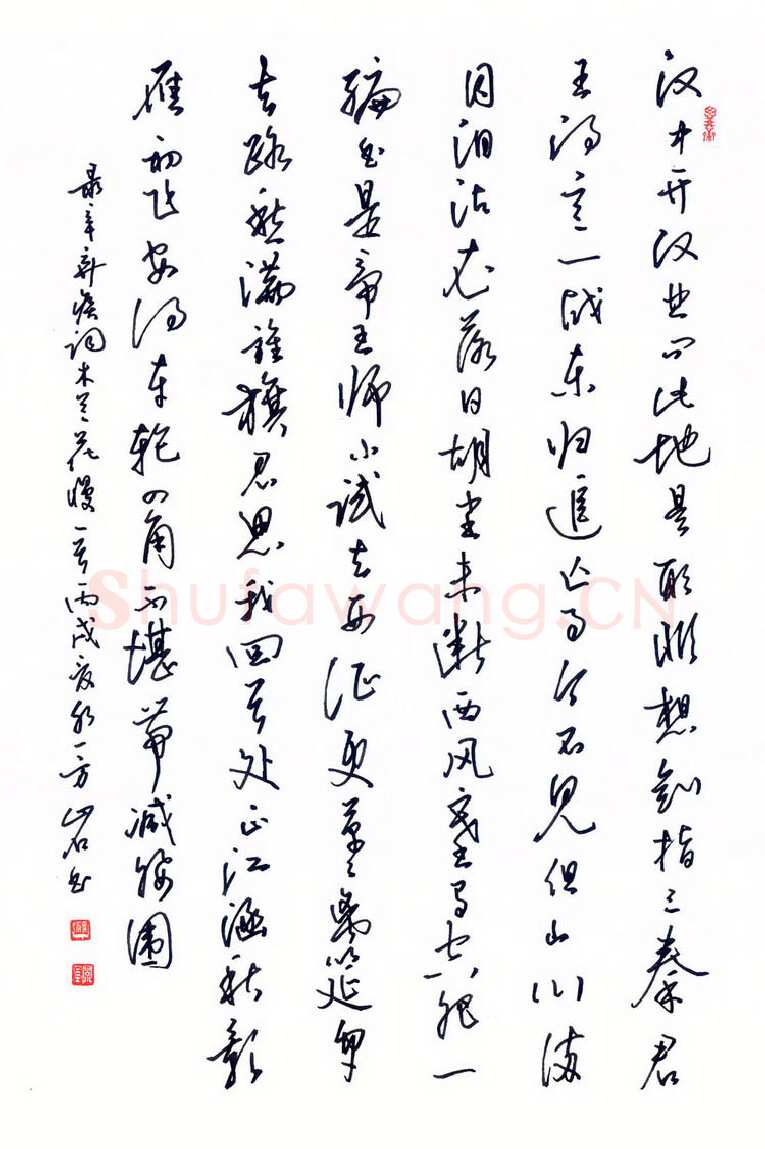 汉中开汉业问此地是耶非想剑指三秦君
王得意一战东归追亡事今不见但山川满
目泪沾衣落日胡尘未断西风塞马空肥一
编书是帝王师小试去西征更草草离筵匆匆
去路愁满旌旗君思我回首处正江涵秋影
雁初飞安得车轮四角不堪带减腰围
录辛弃疾词木兰花慢一首丙戌夏一方岩书
Shufawang.CN